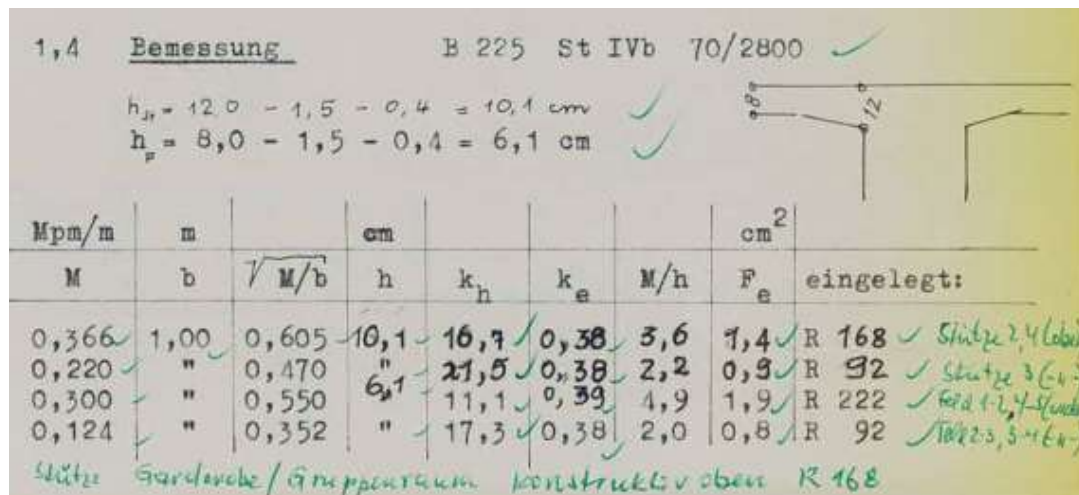 1,4 Bemessung B 225 St IVb 70/2800
h = 12,0 - 1,5 - 0,4 = 10,1 cm
h = 8,0 - 1,5 - 0,4 = 6,1 cm
8 12
Mpm/m m cm cm²
M b √M/b h kh ke M/h Fe eingelegt:
0,366 1,00 0,605 10,1 16,7 0,38 3,6 1,4 R 168 Stütze 2,4 (oben
0,220 " 0,470 " 21,5 0,38 2,2 0,9 R 92 Stütze 3
0,300 " 0,550 6,1 11,1 0,39 4,9 1,9 R 222 Feld 1-2, 4-5 (unten
0,124 " 0,352 " 17,3 0,38 2,0 0,8 R 92 2-3, 3-4
Stütze Garderobe/Gruppenraum konstruktiv oben R 168